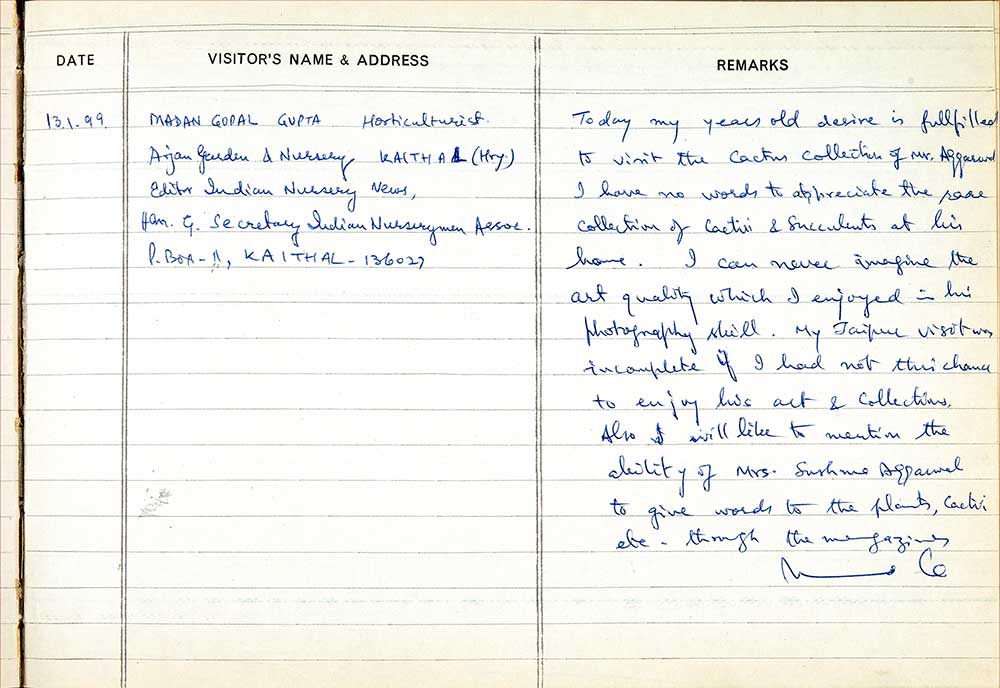 DATE
VISITOR'S NAME & ADDRESS
REMARKS
13.1.99.
MADAN GOPAL GUPTA Horticulturist.
Arjan Garden & Nursery, KAITHAL (Hry.)
Editor Indian Nursery News,
Hon. G. Secretary Indian Nurserymen Assoc.
P. Box - 11, KAITHAL - 136027
Today my years old desire is fullfilled
to visit the Cactus collection of Mr. Aggarwal
I have no words to appreciate the rare
collection of Cactii & Succulents at his
home. I can never imagine the
art quality which I enjoyed in his
photography skill. My Jaipur visit was
incomplete if I had not this chance
to enjoy his art & Collections.
Also I will like to mention the
ability of Mrs. Sushma Aggarwal
to give words to the plants, Cactii
etc - through the mengazines